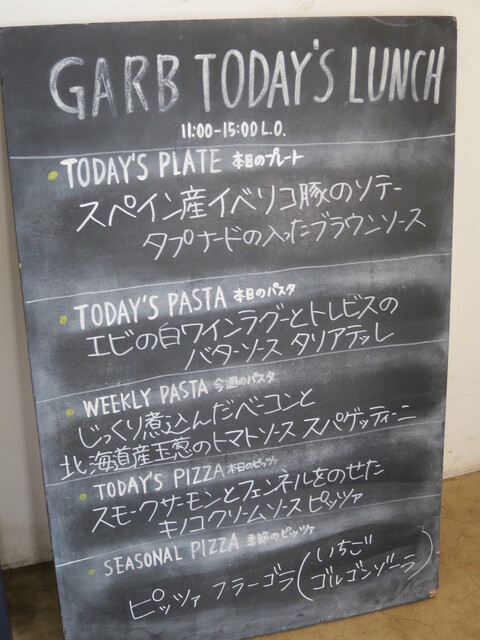 GARB TODAY'S LUNCH
11:00-15:00 L.O.
TODAY'S PLATE 本日のプレート
スペイン産イベリコ豚のソテー
タプナードの入ったブラウンソース
TODAY'S PASTA 本日のパスタ
エビの白ワインラグーとトレビスの
バターソース タリアテッレ
WEEKLY PASTA 今週のパスタ
じっくり煮込んだベーコンと
北海道産玉葱のトマトソース スパゲッティーニ
TODAY'S PIZZA 本日のピッツァ
スモークサーモンとフェンネルをのせた
キノコクリームソース ピッツァ
SEASONAL PIZZA 季節のピッツァ
ピッツァ フラーゴラ(いちご
ゴルゴンゾーラ)